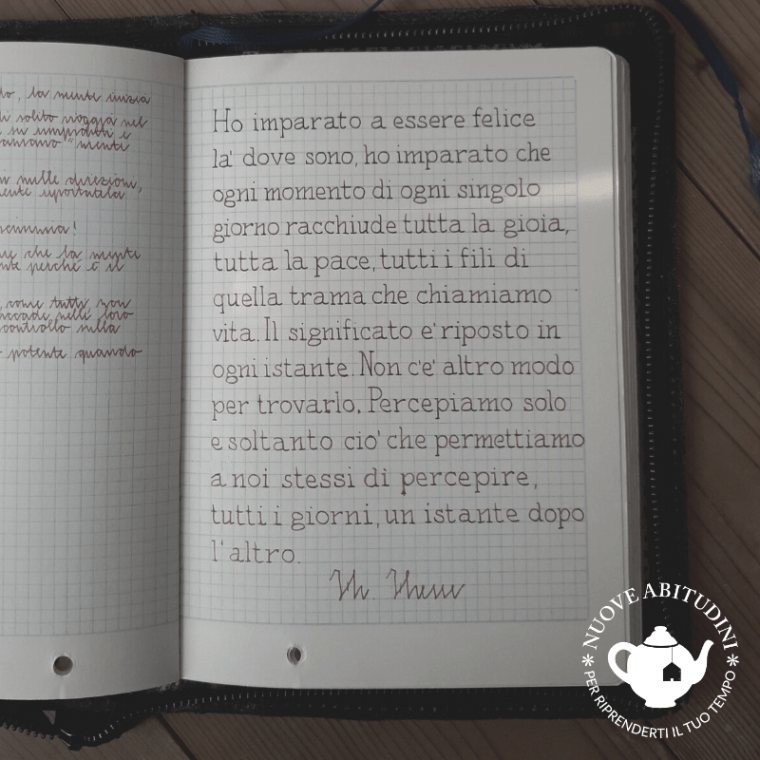 do, la mente inizia
di solito viaggia nel
mente
nelle direzioni,
che la mente
perché è il
come tutti, non
controllo sulla
potente quando
Ho imparato a essere felice
la' dove sono, ho imparato che
ogni momento di ogni singolo
giorno racchiude tutta la gioia,
tutta la pace, tutti i fili di
quella trama che chiamiamo
vita. Il significato e' riposto in
ogni istante. Non c'e' altro modo
per trovarlo. Percepiamo solo
e soltanto cio' che permettiamo
a noi stessi di percepire,
tutti i giorni, un istante dopo
l'altro.
NUOVE ABITUDINI
PER RIPRENDERTI IL TUO TEMPO